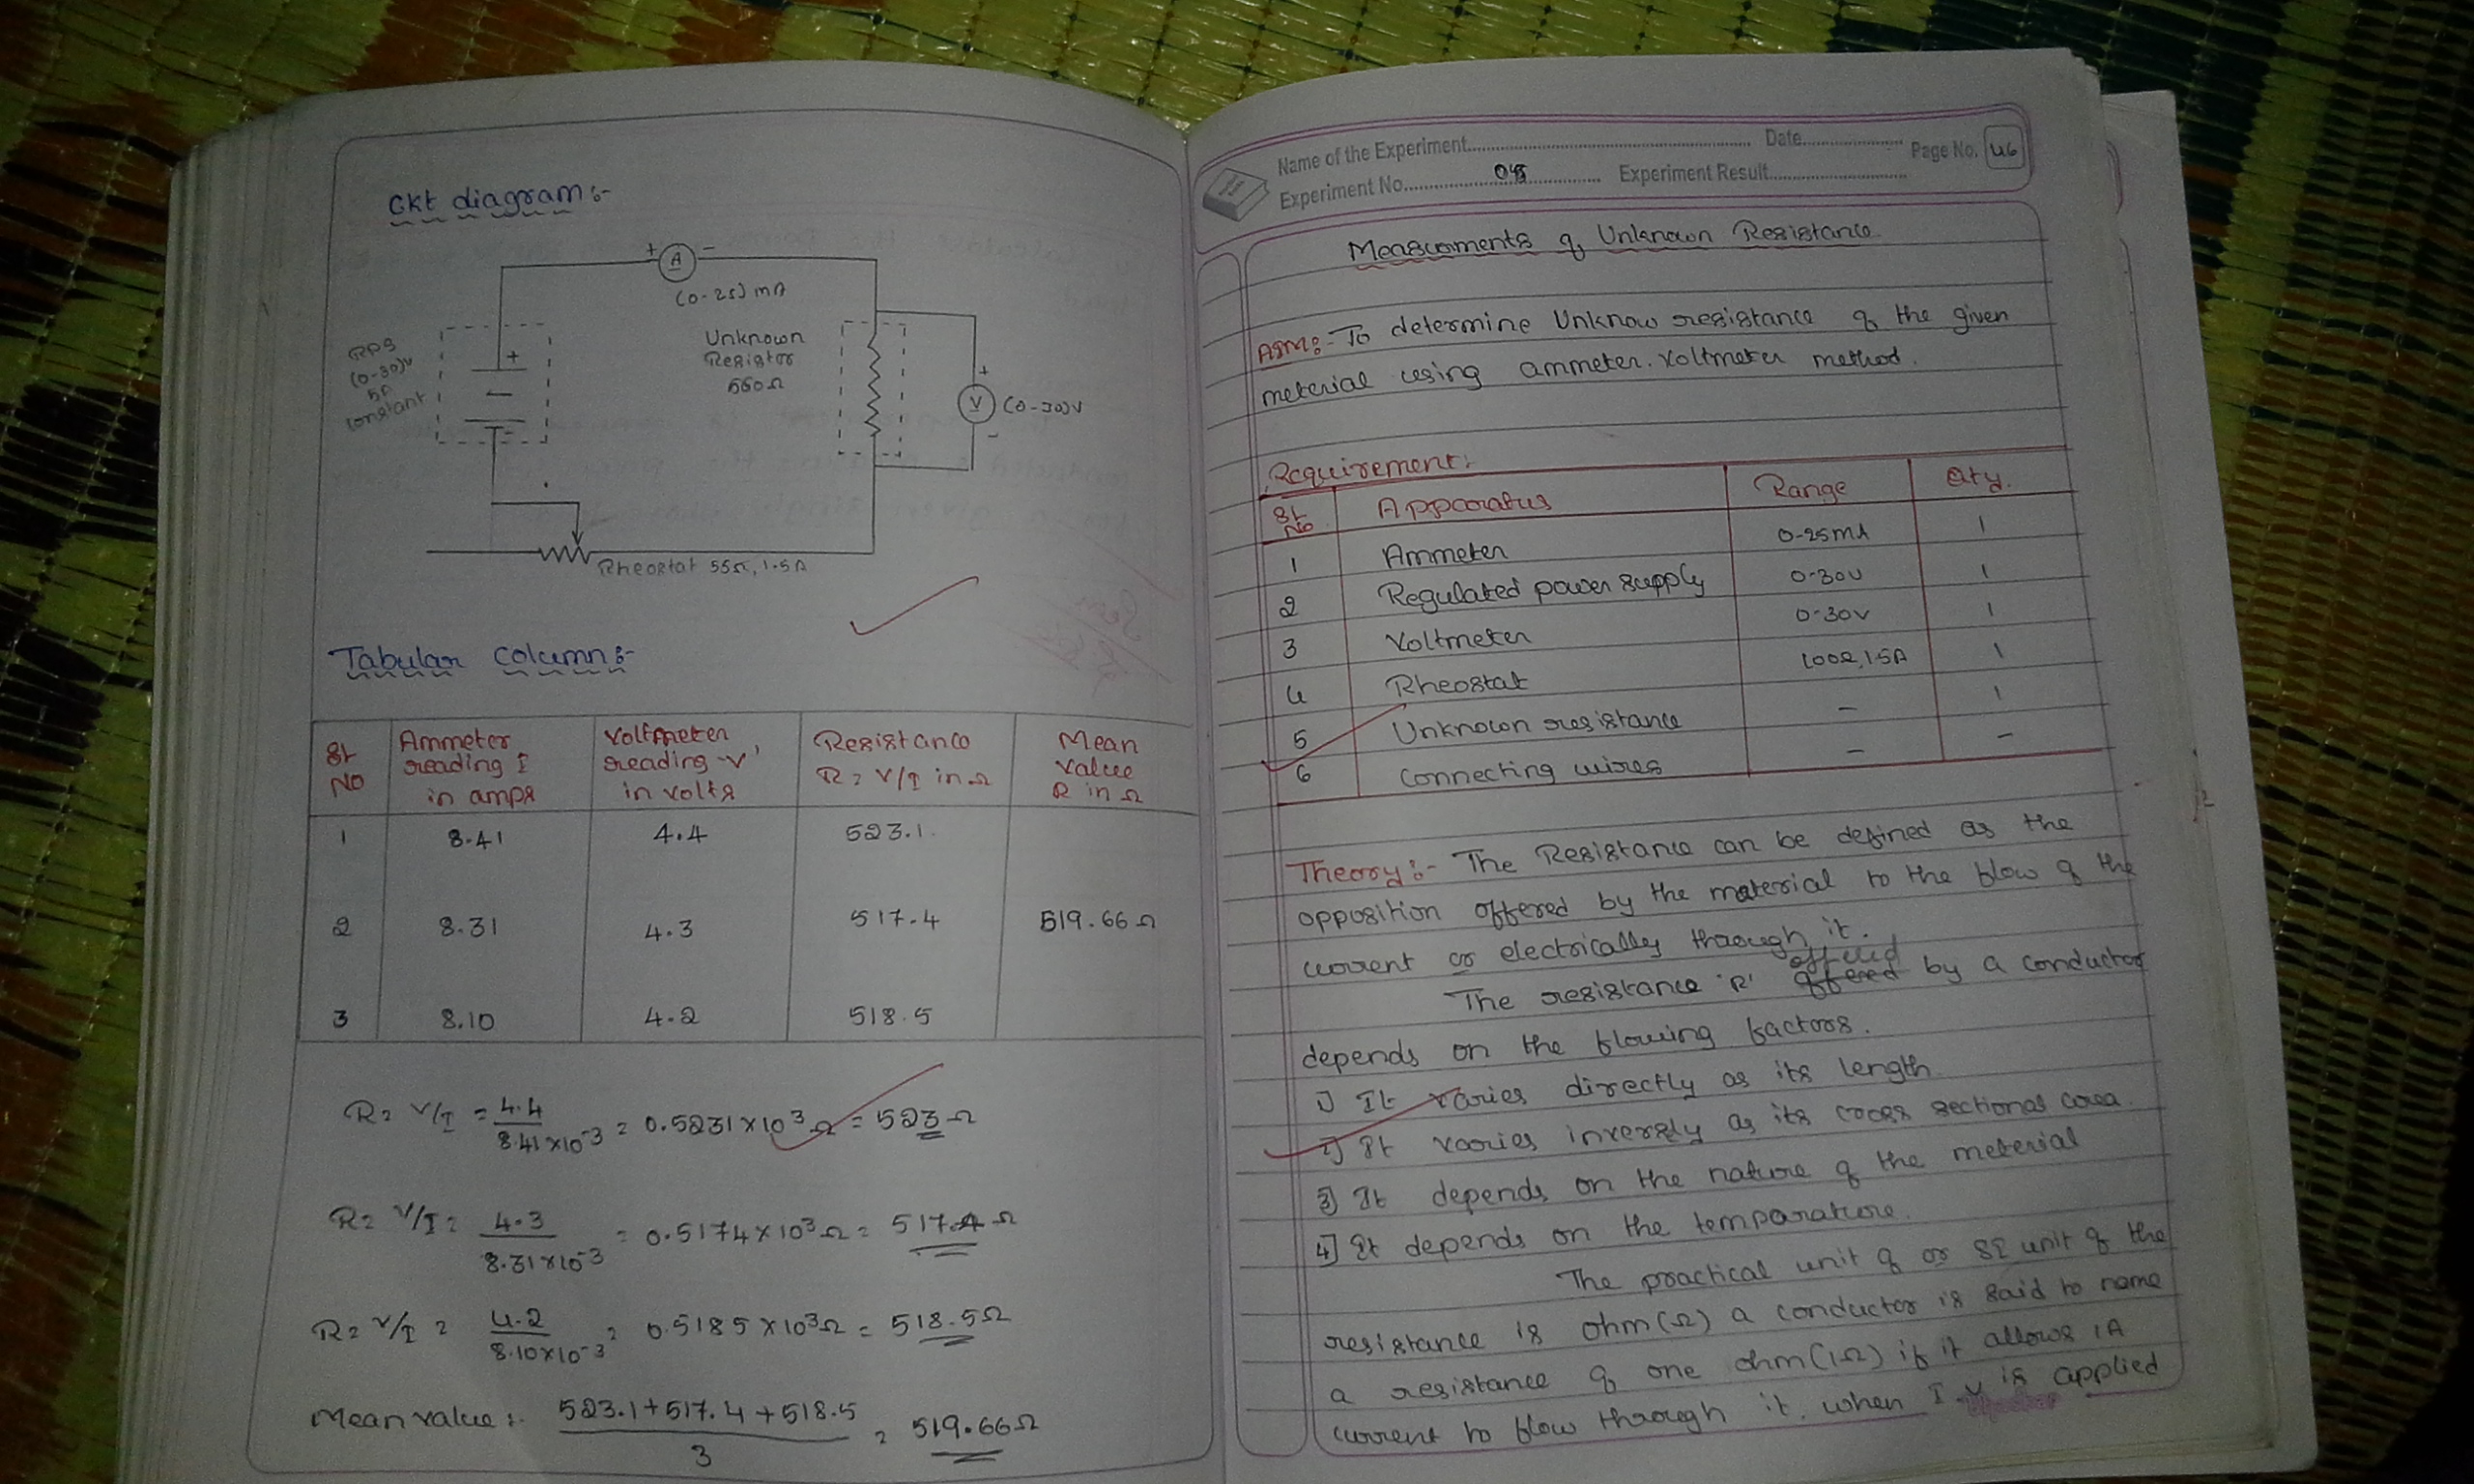 Ckt diagram :-
+ A -
(0-25) mA
RPS
(0-30)V
5A
constant
+
-
Unknown
Resistor
560Ω
+
V (0-30)V
-
Rheostat 55Ω, 1.5A
Tabular column :-
Sl No | Ammeter reading I in amps | Voltmeter reading 'V' in volts | Resistance R = V/I in Ω | Mean value R in Ω
1 8.41 4.4 523.1
2 8.31 4.3 517.4 519.66Ω
3 8.10 4.2 518.5
R = V/I = 4.4 / 8.41×10⁻³ = 0.5231×10³Ω = 523Ω
R = V/I = 4.3 / 8.31×10⁻³ = 0.5174×10³Ω = 517.4Ω
R = V/I = 4.2 / 8.10×10⁻³ = 0.5185×10³Ω = 518.5Ω
Mean value :- 523.1+517.4+518.5 / 3 = 519.66Ω
Name of the Experiment Date Page No. 46
Experiment No. Experiment Result
Measurments of Unknown Resistance
AIM:- To determine Unknow resistance of the given
meterial using ammeter. Voltmeter method.
Requirement:
Sl No | Apparatus | Range | Qty.
1 Ammeter 0-25mA 1
2 Regulated power supply 0-30V 1
3 Voltmeter 0-30V 1
4 Rheostat 100Ω, 1.5A 1
5 Unknown resistance - 1
6 Connecting wires - -
Theory :- The Resistance can be defined as the
opposition offered by the material to the flow of the
current or electrically through it.
offered
The resistance 'R' offered by a conductor
depends on the flowing factors.
1) It varies directly as its length.
2) It varies inversly as its cross sectional area.
3) It depends on the nature of the meterial
4) It depends on the temparature.
The practical unit of or SI unit of the
resistance is ohm (Ω) a conductor is said to name
a resistance of one ohm (1Ω) if it allows 1A
current to flow through it, when 1 V is applied